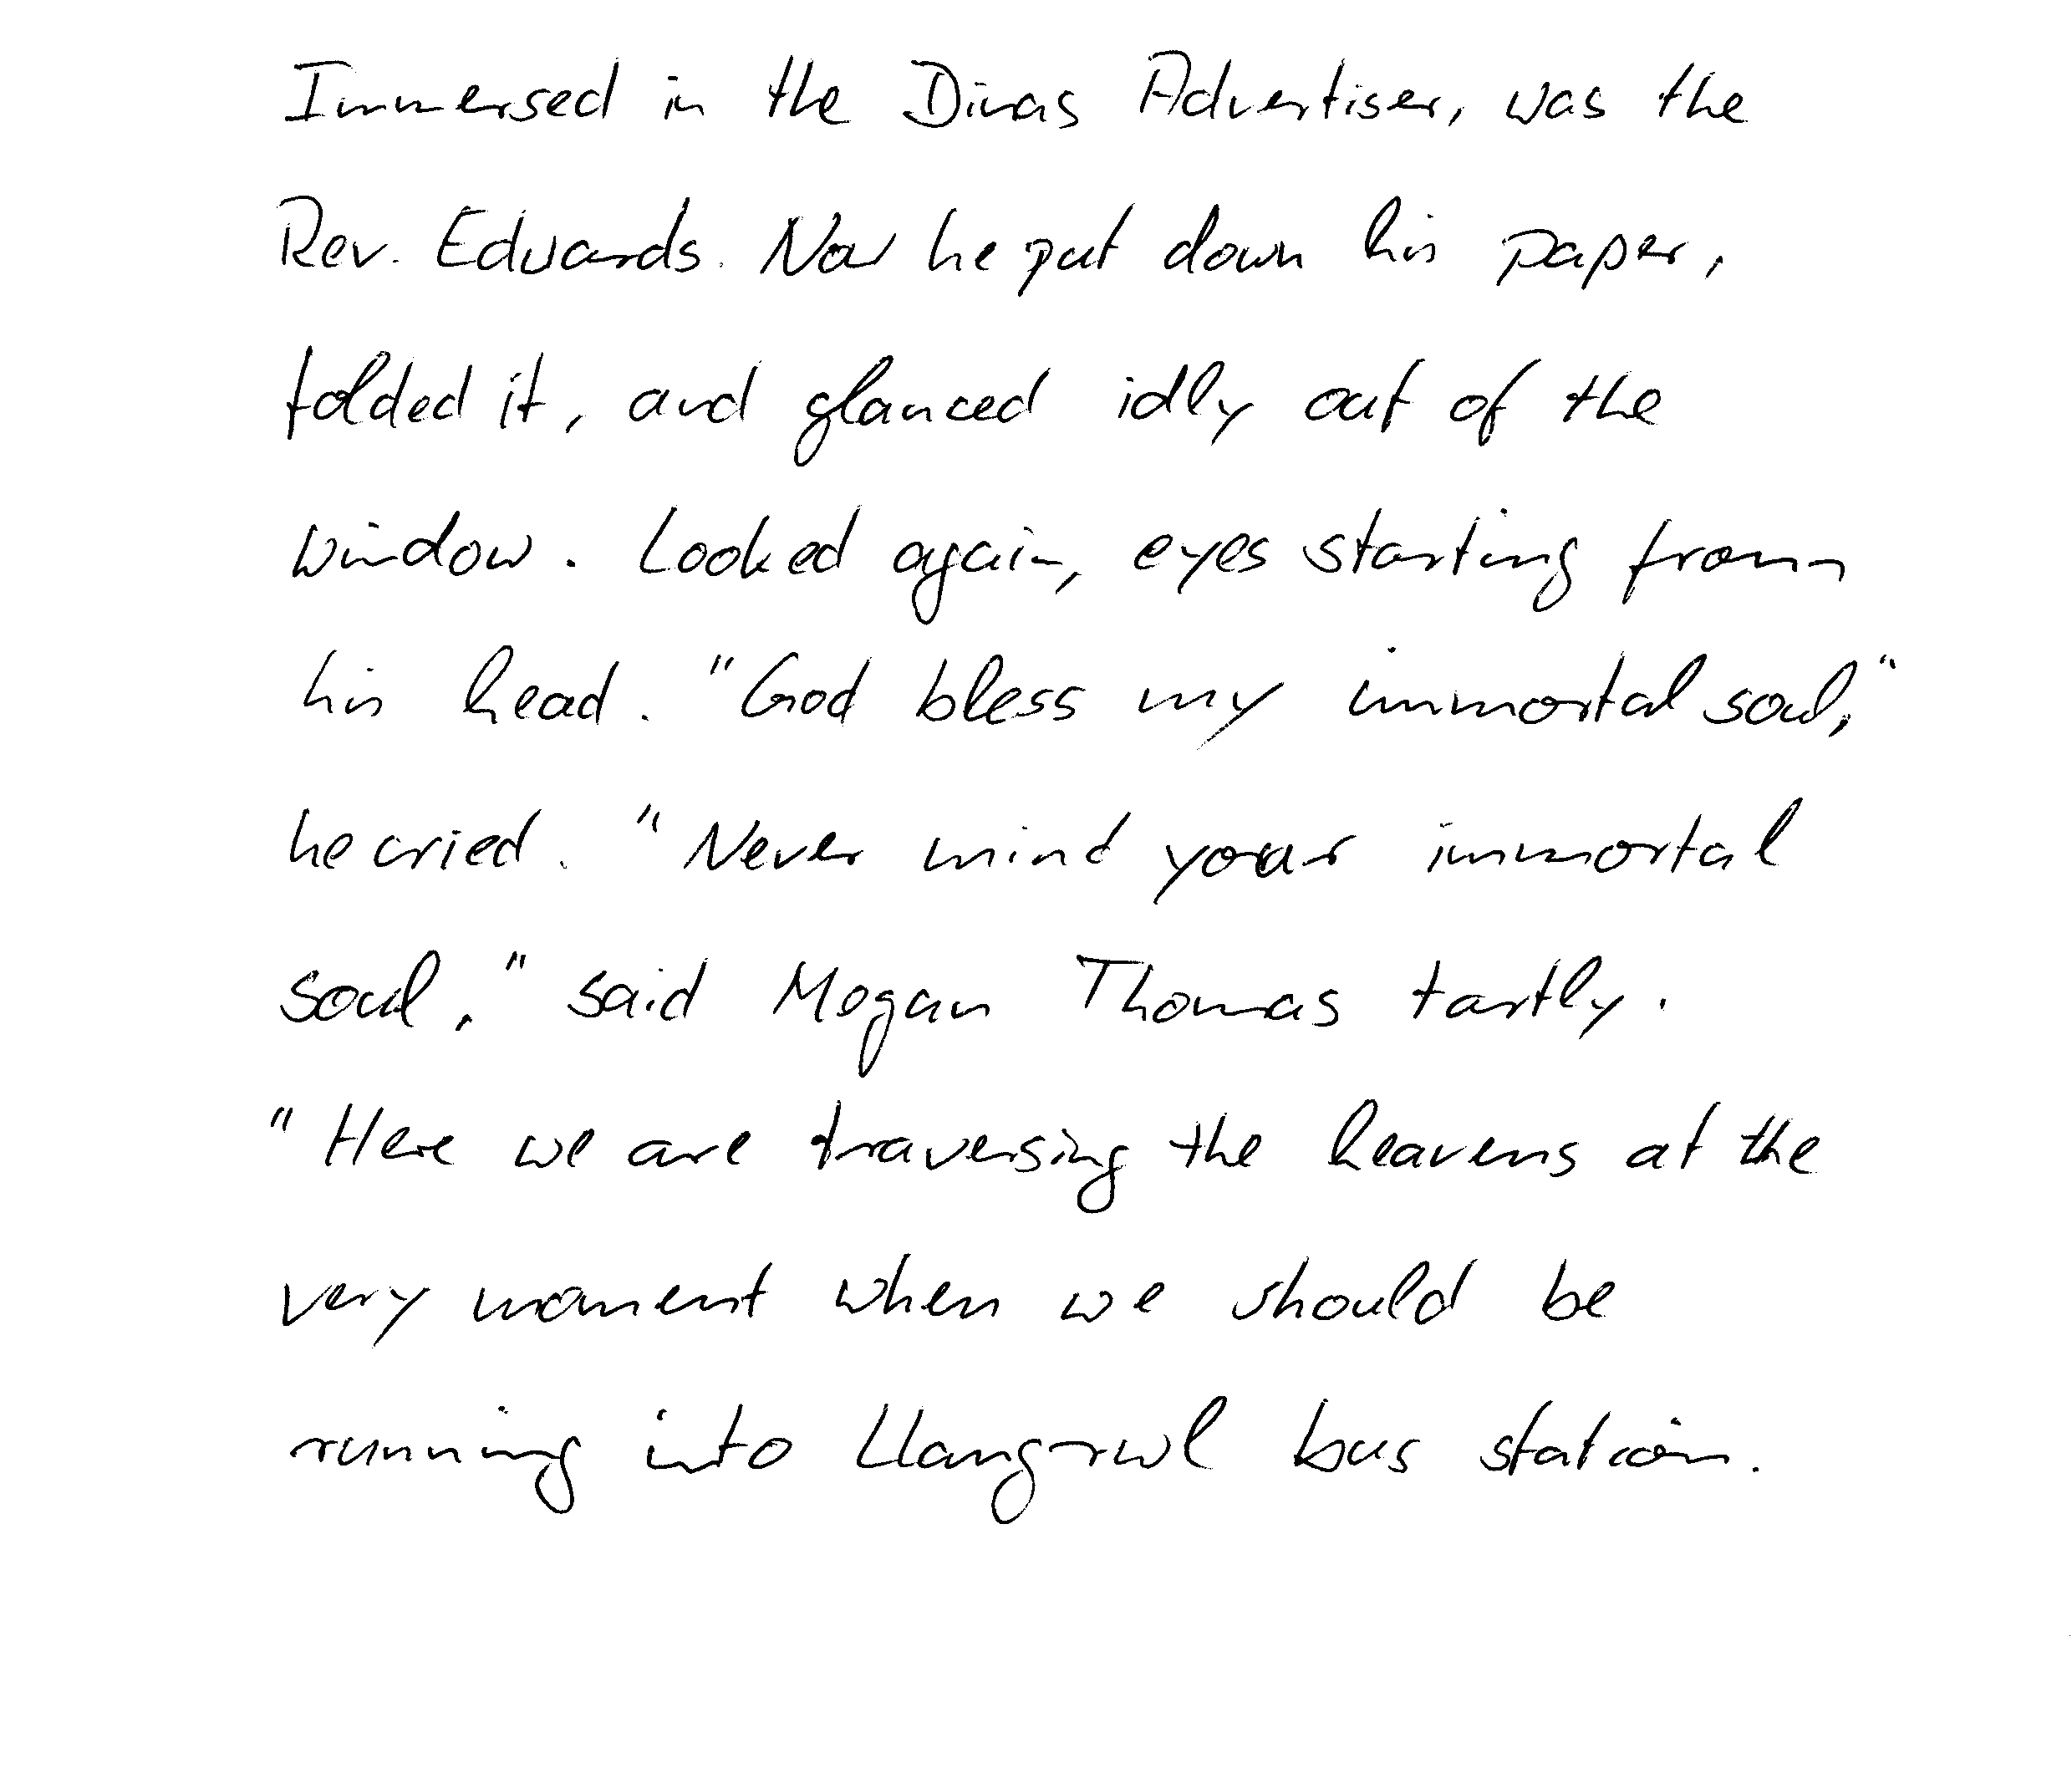 Immersed in the Dinas Advertiser, was the
Rev. Edwards. Now he put down his paper,
folded it, and glanced idly out of the
window. Looked again, eyes starting from
his head. "God bless my immortal soul,"
he cried. "Never mind your immortal
soul," said Mogan Thomas tartly.
"Here we are traversing the heavens at the
very moment when we should be
running into Llangrwl bus station.